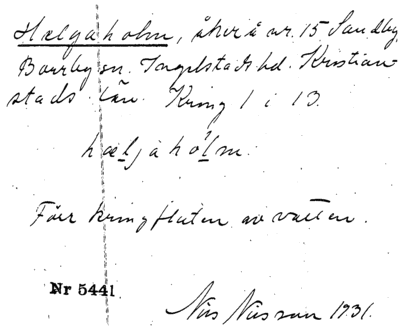 Hælgaholm, åker å nr. 15 Sandby,
Borrby sn. Ingelstads hd. Kristian-
stads län. Kring 1 i 13.
hæljahòlm.
Förr kringfluten av vatten.
Nr 5441
Nils Nilsson 1931.